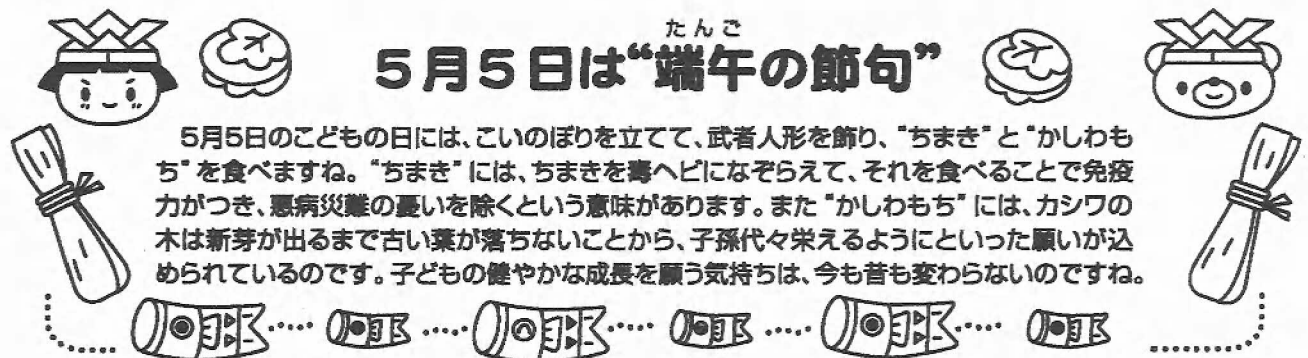 たんご
5月5日は“端午の節句”
5月5日のこどもの日には、こいのぼりを立てて、武者人形を飾り、“ちまき”と“かしわも
ち”を食べますね。“ちまき”には、ちまきを毒ヘビになぞらえて、それを食べることで免疫
力がつき、悪病災難の憂いを除くという意味があります。また“かしわもち”には、カシワの
木は新芽が出るまで古い葉が落ちないことから、子孫代々栄えるようにといった願いが込
められているのです。子どもの健やかな成長を願う気持ちは、今も昔も変わらないのですね。